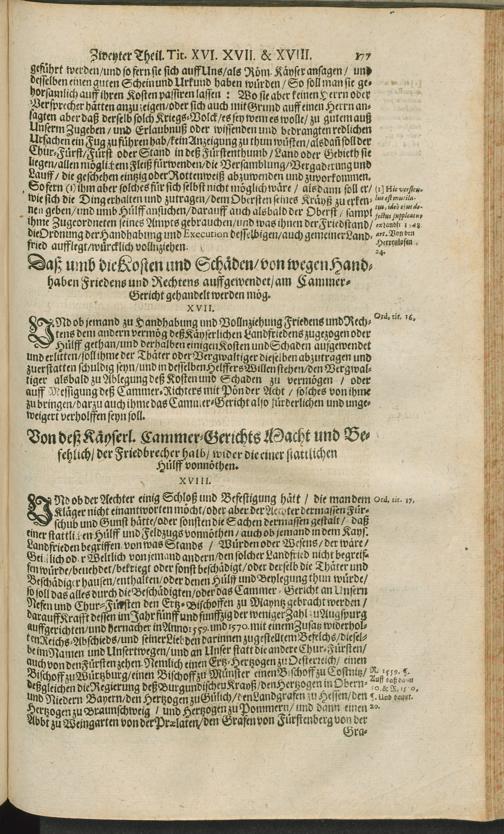 Zweyter Theil. Tit. XVI. XVII. & XVIII. 177
geführt werden/und so fern sie sich auff Uns/als Röm. Käyser ansagen / und
desselben einen guten Schein und Urkund haben würden / So soll man sie ge-
horsamlich auff ihren Kosten passiren lassen : Wo sie aber keinen Herrn oder
Versprecher hätten anzuzeigen/oder sich auch mit Grund auff einen Herrn an-
sagten aber daß derselb solch Kriegs-Volck/es sey wem es wolle/ zu gutem auß
Unserm Zugeben / und Erlaubnuß oder wissenden und bedrangten redlichen
Ursachen ein Fug zu führen hab/kein Anzeigung zu thun wüsten/alsdañ soll der
Chur-Fürst/Fürst oder Stand in deß Fürstenthumb / Land oder Gebieth sie
liegen/allen möglichen Fleiß fürwenden/die Versamblung/Vergaderung und
Lauff / die geschehen einzig oder Rottenweiß abzuwenden und zuvorkommen.
So fern (1) ihm aber solches für sich selbst nicht möglich wäre / als dann soll er/
wie sich die Ding erhalten und zutragen/dem Obersten seines Kräyß zu erken-
nen geben/und umb Hülff ansuchen/darauff auch alsbald der Oberst / sampt
ihme Zugeordneten seines Ampts gebrauchen/und was ihnen der Friedstand/
die Ordnung der Handhabung und Execution desselbigen/auch gemeiner Land-
fried aufflegt/würcklich vollnziehen.
(1) Hic
Von den
Herrnlosen
24.
Daß umb die Kosten und Schäden/von wegen Hand-
haben Friedens und Rechtens auffgewendet/am Cammer-
Gericht gehandelt werden mög.
XVII.
UNd ob jemand zu Handhabung und Vollnziehung Friedens und Rech-
tens dem andern vermög deß Käyserlichen Landfriedens zugezogen oder
Hülff gethan/und derhalben einigen Kosten und Schaden auffgewendet
und erlitten/soll ihme der Thäter oder Vergwaltiger dieselben abzutragen und
zuerstatten schuldig seyn/und in desselben Helffers Willen stehen/den Vergwal-
tiger alsbald zu Ablegung deß Kosten und Schaden zu vermögen / oder
auff Messigung deß Cammer-Richters mit Pön der Acht / solches von ihme
zu bringen/darzu auch ihme das Cammer-Gericht also fürderlichen und unge-
weigert verholffen seyn soll.
Ord. tit. 16.
Von deß Käyserl. Cammer-Gerichts Macht und Be-
fehlich/ der Friedbrecher halb/ wider die einer stattlichen
Hülff vonnöthen.
XVIII.
UNd ob der Aechter einig Schloß und Befestigung hätt / die man dem
Kläger nicht einantworten möcht/oder aber der Aechter dermassen Für-
schub und Gunst hätte/oder sonsten die Sachen dermassen gestalt / daß
einer stattlichen Hülff und Feldzugs vonnöthen / auch ob jemand in dem Kays.
Landfrieden begriffen von was Stands / Würden oder Wesens / der wäre/
Geistlich oder Weltlich von jemand andern/den solcher Landfried nicht begreif-
fen würde/benehdet/bekriegt oder sonst beschädigt/oder derselb die Thäter und
Beschädiger hausen/enthalten/oder denen Hülff und Beylegung thun würde/
so soll das alles durch die Beschädigten/oder das Cammer-Gericht an Unsern
Nefen und Chur-Fürsten den Ertz-Bischoffen zu Mayntz gebracht werden /
darauff Krafft dessen im Jahr fünff und fünffzig der weniger Zahl zu Augspurg
auffgerichten und hernacher in Anno 1559. und 1570. mit einem Zusatz wiederhol-
ten Reichs-Abschieds/und seiner Liebden darinnen zugestelltem Befelchs/diesel-
be im Namen und Unsertwegen/und an Unser statt die andere Chur-Fürsten/
auch von den Fürsten zehen. Nemlich einen Ertz-Hertzogen zu Oesterreich / einen
Bischoff zu Würtzburg/einen Bischoff zu Münster einen Bischoff zu Costnitz/
deßgleichen die Regierung deß Burgundischen Krayß/den Hertzogen in Obern-
und Niedern Bayern/den Hertzogen zu Gülich/den Landgrafen zu Hessen/den
Hertzogen zu Braunschweig / und Hertzogen zu Pommern/ und dann einen
Abbt zu Weingarten von der Prælaten/den Grafen von Fürstenberg von der
Ord. tit. 17.
R. 1559. §.
Gra-